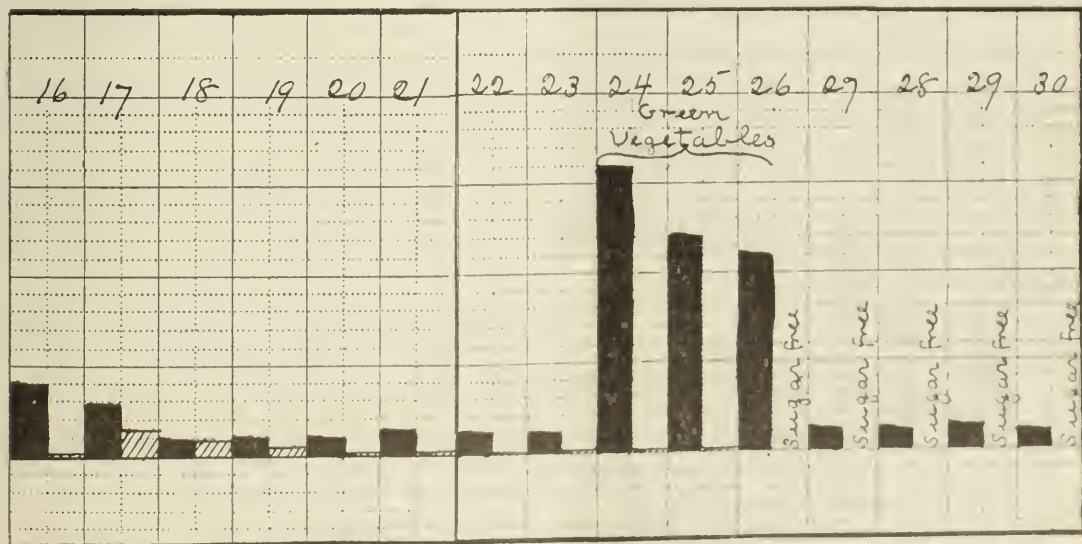 16 17 18 19 20 21 22 23 24 25 26 27 28 29 30
Green
Vegetables
Sugar free
Sugar free
Sugar free
Sugar free
Sugar free